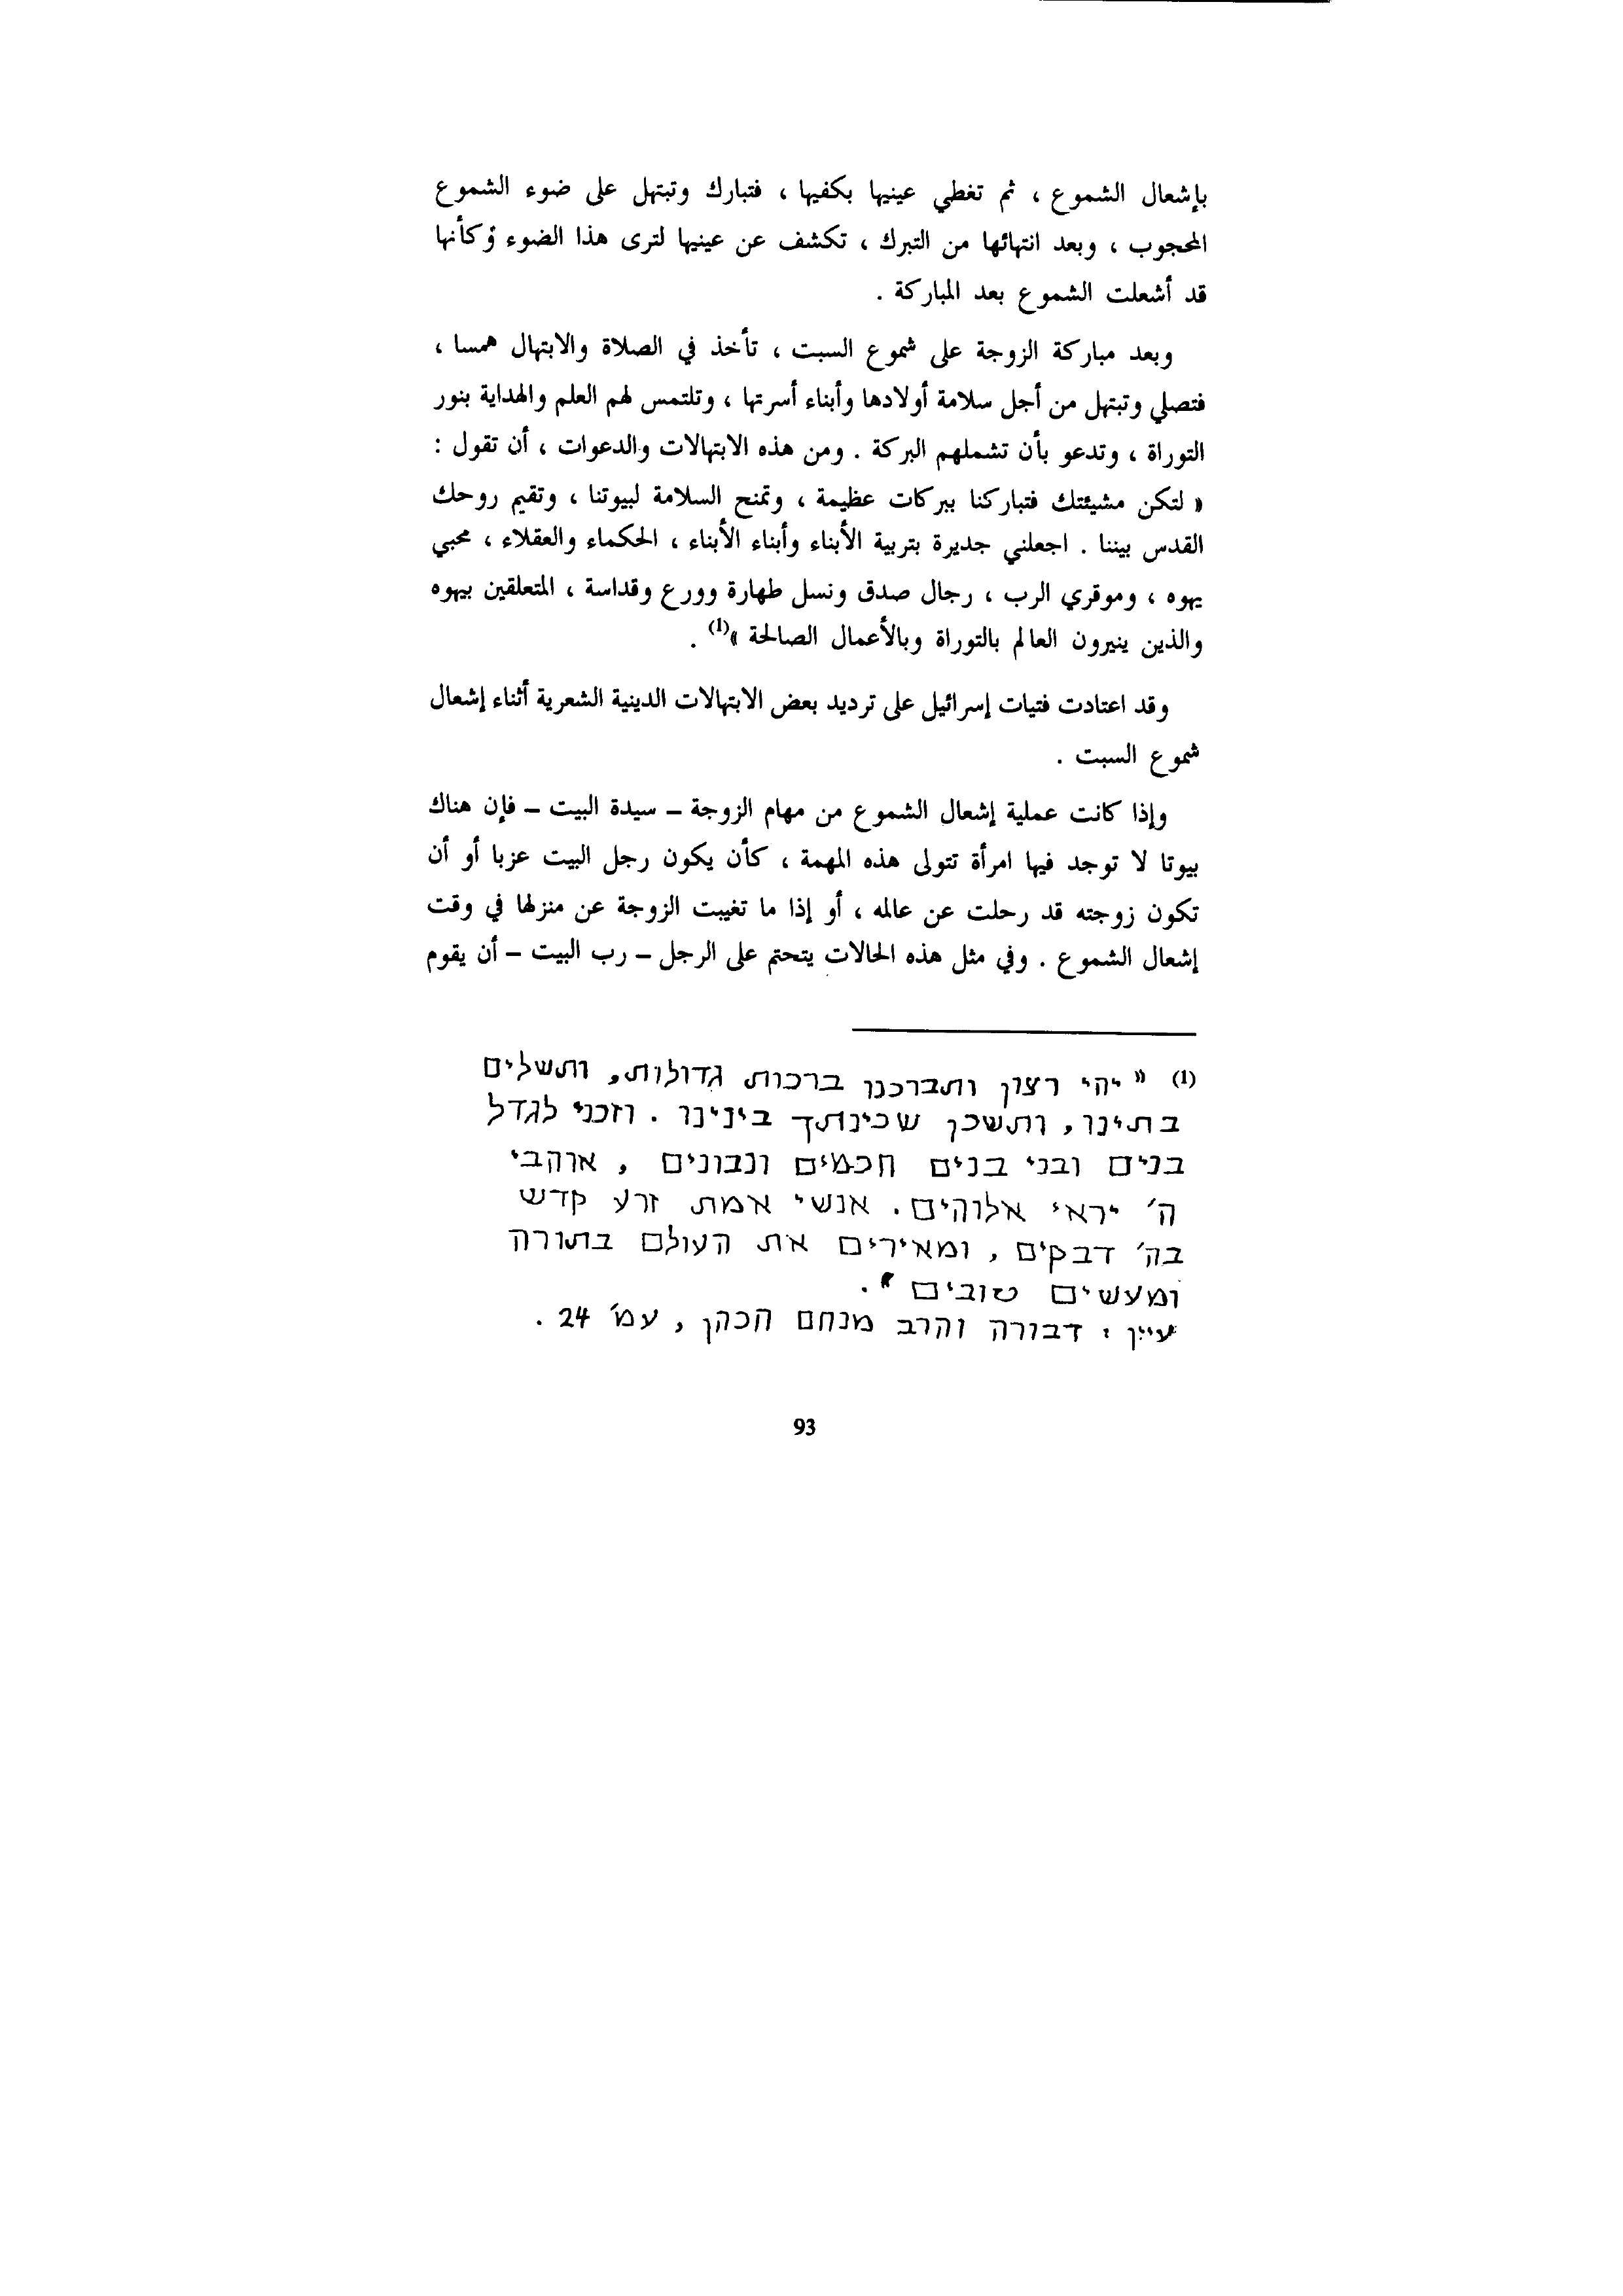 بإشعال الشموع ، ثم تغطي عينيها بكفيها ، فتبارك وتبتهل على ضوء الشموع
المحجوب ، وبعد انتهائها من التبرك ، تكشف عن عينيها لترى هذا الضوء وكأنها
قد أشعلت الشموع بعد المباركة .
وبعد مباركة الزوجة على شموع السبت ، تأخذ في الصلاة والابتهال همسا ،
فتصلي وتبتهل من أجل سلامة أولادها وأبناء أسرتها ، وتلتمس لهم العلم والهداية بنور
التوراة ، وتدعو بأن تشملهم البركة . ومن هذه الابتهالات والدعوات ، أن تقول :
« لتكن مشيئتك فتباركنا ببركات عظيمة ، وتمنح السلامة لبيوتنا ، وتقيم روحك
القدس بيننا . اجعلني جديرة بتربية الأبناء وأبناء الأبناء ، الحكماء والعقلاء ، محبي
يهوه ، وموقري الرب ، رجال صدق ونسل طهارة وورع وقداسة ، المتعلقين بيهوه
والذين ينيرون العالم بالتوراة وبالأعمال الصالحة »(1) .
وقد اعتادت فتيات إسرائيل على ترديد بعض الابتهالات الدينية الشعرية أثناء إشعال
شموع السبت .
وإذا كانت عملية إشعال الشموع من مهام الزوجة – سيدة البيت – فإن هناك
بيوتا لا توجد فيها امرأة تتولى هذه المهمة ، كأن يكون رجل البيت عزبا أو أن
تكون زوجته قد رحلت عن عالمه ، أو إذا ما تغيبت الزوجة عن منزلها في وقت
إشعال الشموع . وفي مثل هذه الحالات يتحتم على الرجل – رب البيت – أن يقوم
(1) « יהי רצון ותברכנו ברכות גדולות, ותשלים
בתינו, ותשכן שכינתך בינינו . וזכני לגדל
בנים ובני בנים חכמים ונבונים , אוהבי
ה׳ יראי אלוהים. אנשי אמת זרע קדש
בה׳ דבקים , ומאירים את העולם בתורה
ומעשים טובים » .
עיין : דבורה והרב מנחם הכהן , עמ׳ 24 .
93